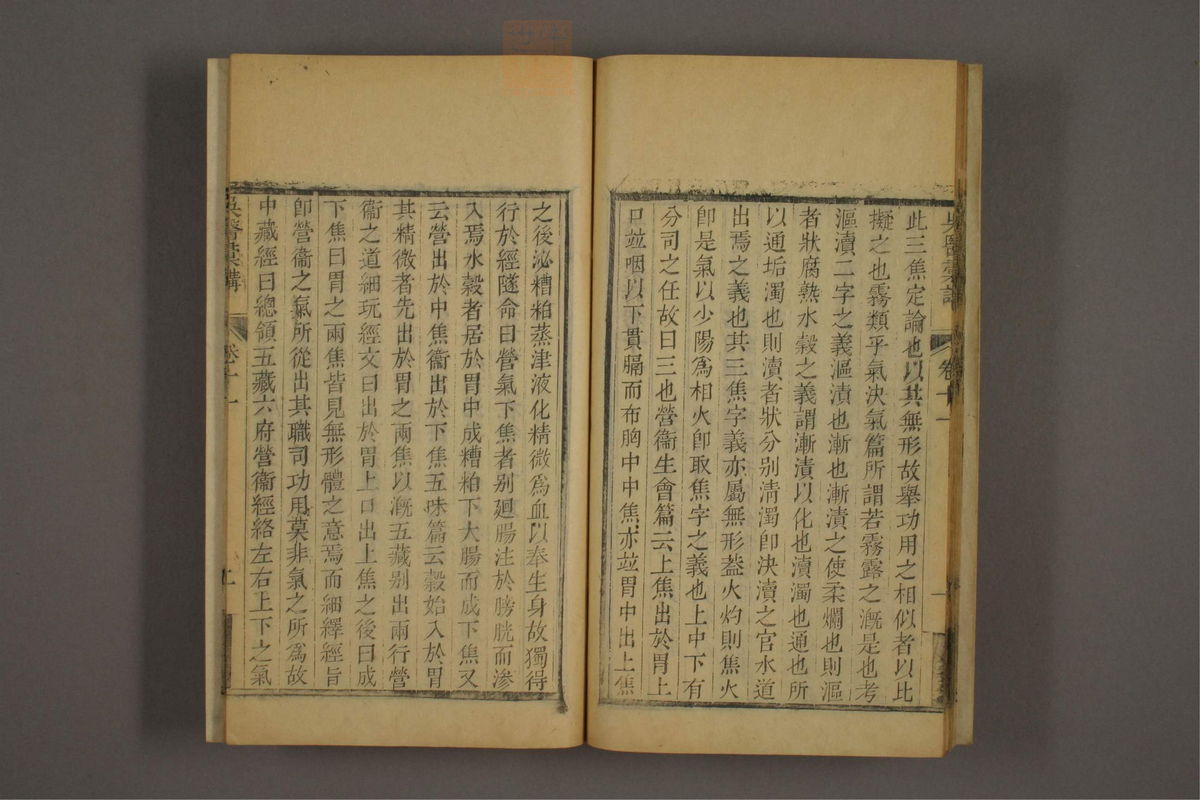 此三焦定論也以其無形故舉功用之相似者以比
擬之也霧類乎氣決氣篇所謂若霧露之溉是也考
漚瀆二字之義漚漬也漸也漸漬之使柔爛也則漚
者狀腐熟水穀之義謂漸漬以化也瀆濁也通也所
以通垢濁也則瀆者狀分別清濁卽決瀆之官水道
出焉之義也其三焦字義亦屬無形葢火灼則焦火
卽是氣以少陽爲相火卽取焦字之義也上中下有
分司之任故曰三也營衞生會篇云上焦出於胃上
口竝咽以下貫膈而布胸中中焦亦竝胃中出上焦
之後泌糟粕蒸津液化精微爲血以奉生身故獨得
行於經隧命曰營氣下焦者别廻腸注於膀胱而滲
入焉水穀者居於胃中成糟粕下大腸而成下焦又
云營出於中焦衞出於下焦五味篇云穀始入於胃
其精微者先出於胃之兩焦以溉五藏别出兩行營
衞之道細玩經文曰出於胃上口出上焦之後曰成
下焦曰胃之兩焦皆見無形體之意焉而細繹經旨
卽營衞之氣所從出其職司功用莫非氣之所爲故
中藏經曰總領五藏六府營衞經絡左右上下之氣
吳醫彙講
卷十一